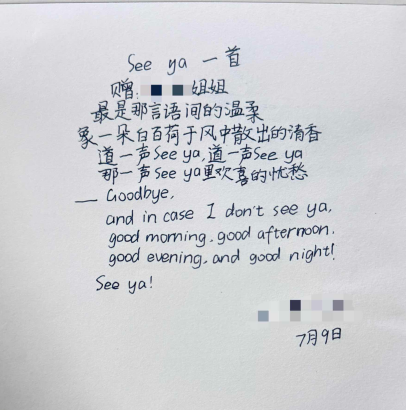 See ya 一首
赠 姐姐
最是那言语间的温柔
象一朵白百荷于风中散出的清香
道一声See ya,道一声See ya
那一声See ya里欢喜的忧愁
— Goodbye,
and in case I don't see ya,
good morning, good afternoon,
good evening, and good night!
See ya!
7月9日